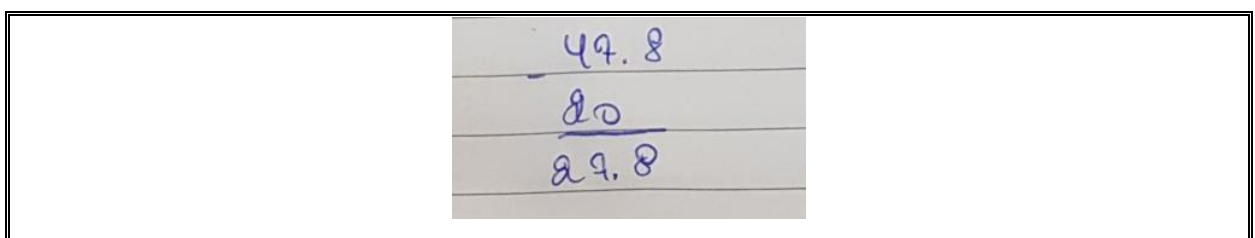 47.8
-
20
27.8